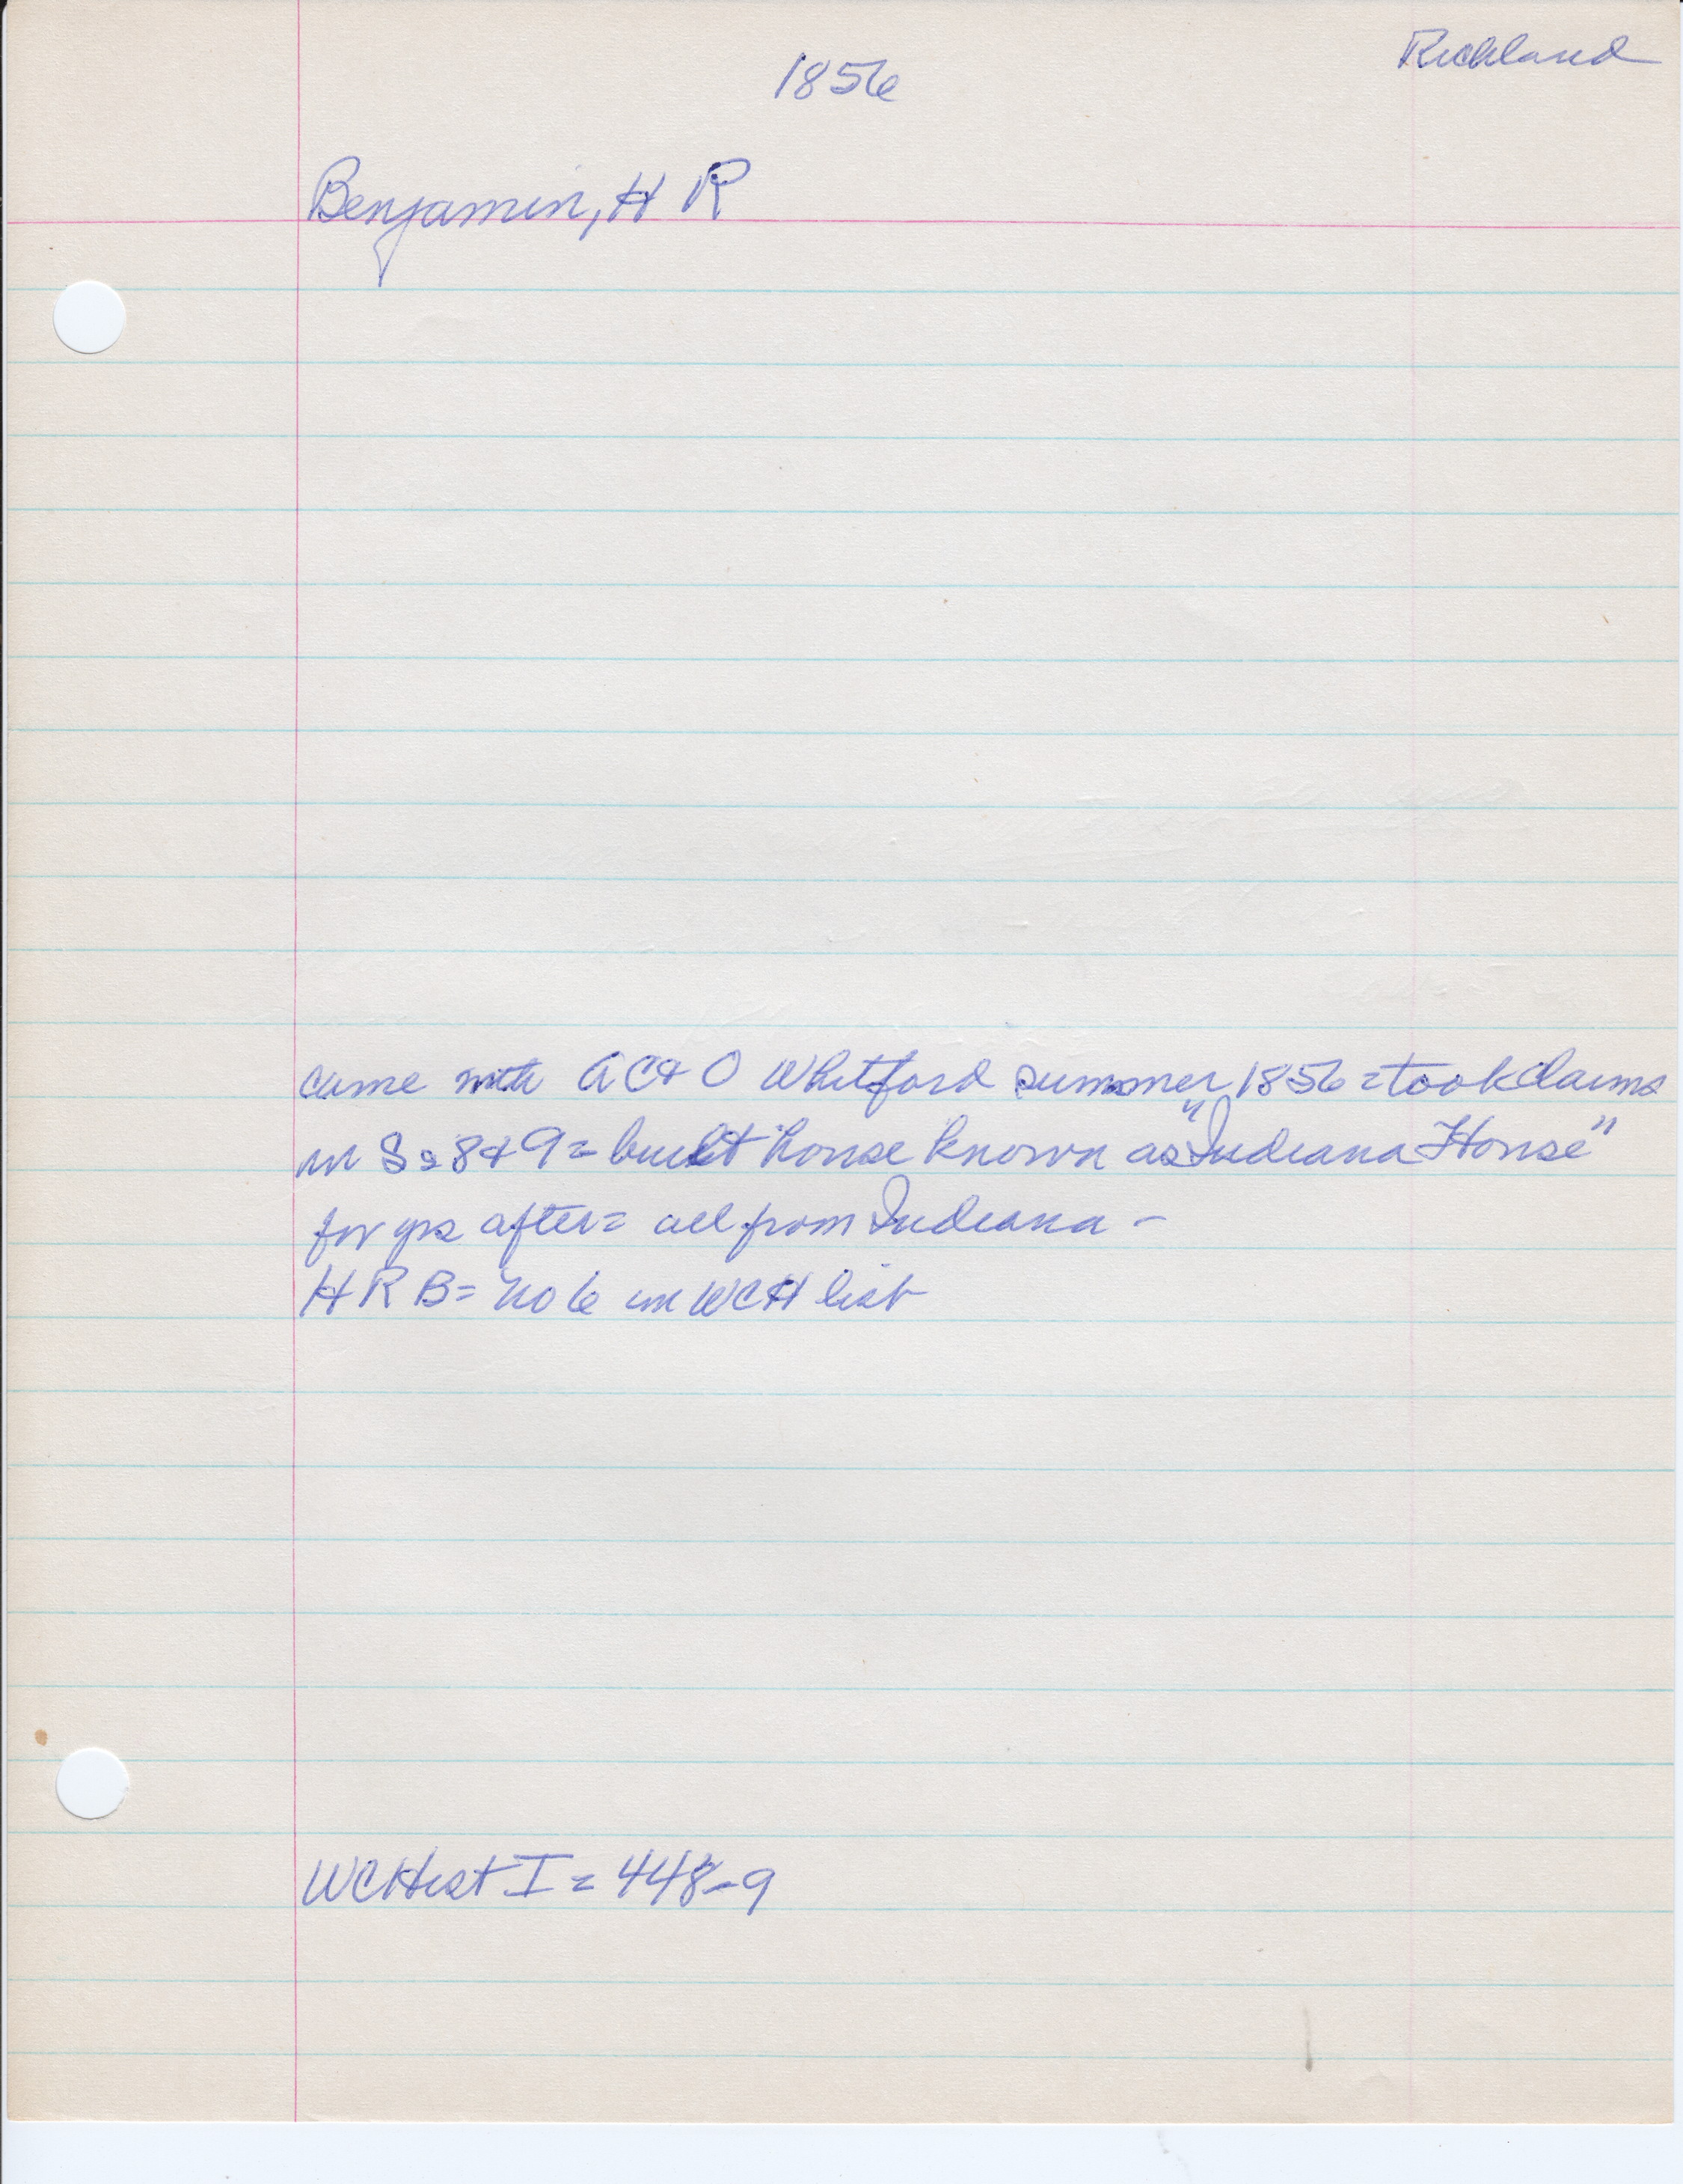 Richland
1856
Benjamin, H R
came with A C & O Whitford summer 1856 = took claims
in S = 8 & 9 = built house known as "Indiana House"
for yrs after = all from Indiana -
H R B = No 6 in WCH list
WCHist I = 448-9